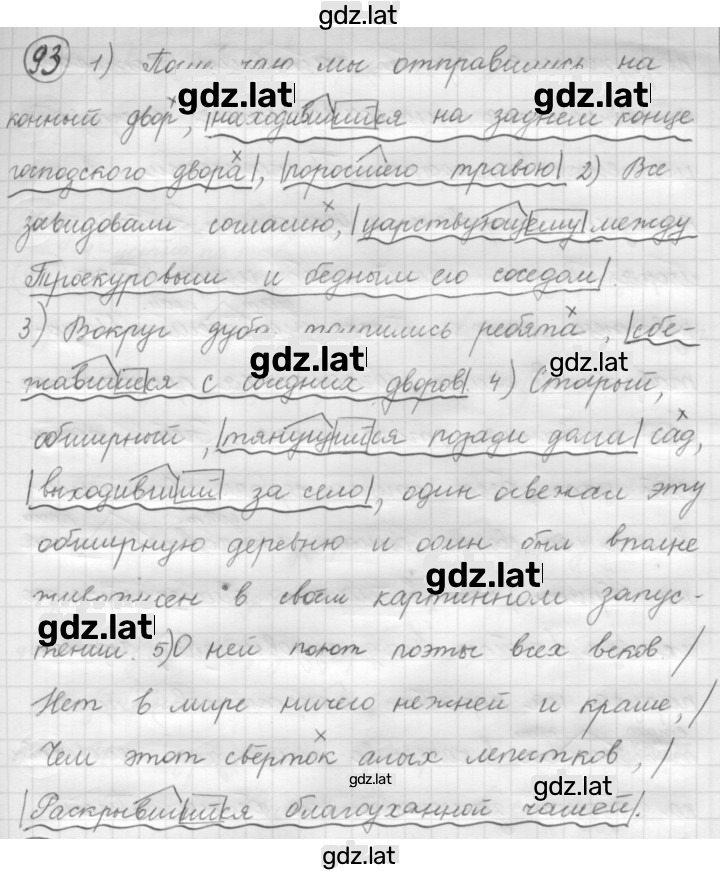 gdz.lat
93 1) мы отправились на
gdz.lat gdz.lat
конный двор, |находившийся на заднем конце
господского двора|, |поросшего травою| 2) Все
завидовали согласию, |царствующему между
Троекуровым и бедным его соседом|.
3) Вокруг дуба толпились ребята, |сбе-
gdz.lat gdz.lat
жавшиеся с соседних дворов|. 4) Старый,
обширный, |тянущийся позади дома| сад,
|выходивший за село|, один освежал эту
обширную деревню и один был вполне
gdz.lat
живописен в своём картинном запус-
gdz.lat
тении. 5) О ней поют поэты всех веков. /
Нет в мире ничего нежней и краше, /
Чем этот свёрток алых лепестков, /
gdz.lat gdz.lat
|Раскрывшийся благоуханной чашей|.
gdz.lat